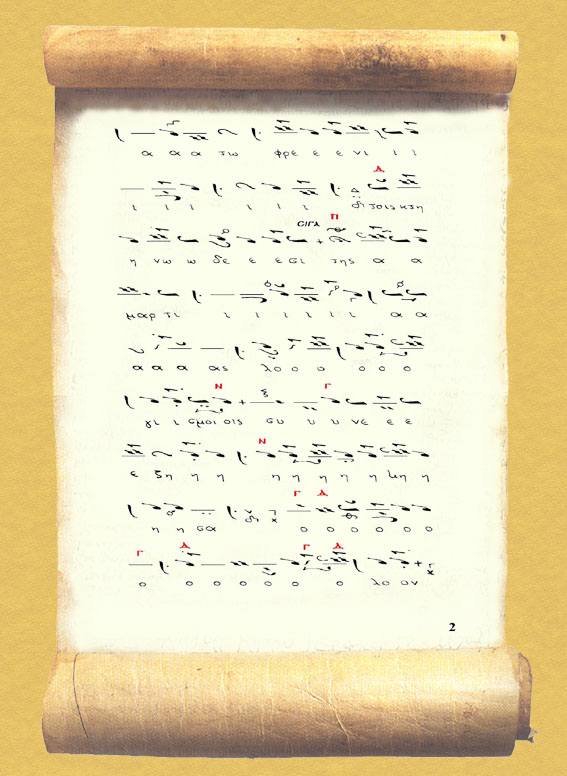 α α α τω φρε ε ε νι ι ι
Δ
ι ι ι ι ι ι τοις κτη
σιγλ Π
η νω ω δε ε ε σι της α α
μαρ τι ι ι ι ι ι ι α α
α α α ας λο ο ο ο ο ο
Ν Γ
γι ι σμοι οις συ υ υ νε ε ε
Ν
ε ζη η η η η η η η η
Γ Δ
η η σα ο ο ο ο ο ο
Γ Δ Γ Δ
ο ο ο ο ο ο ο λο ον
2